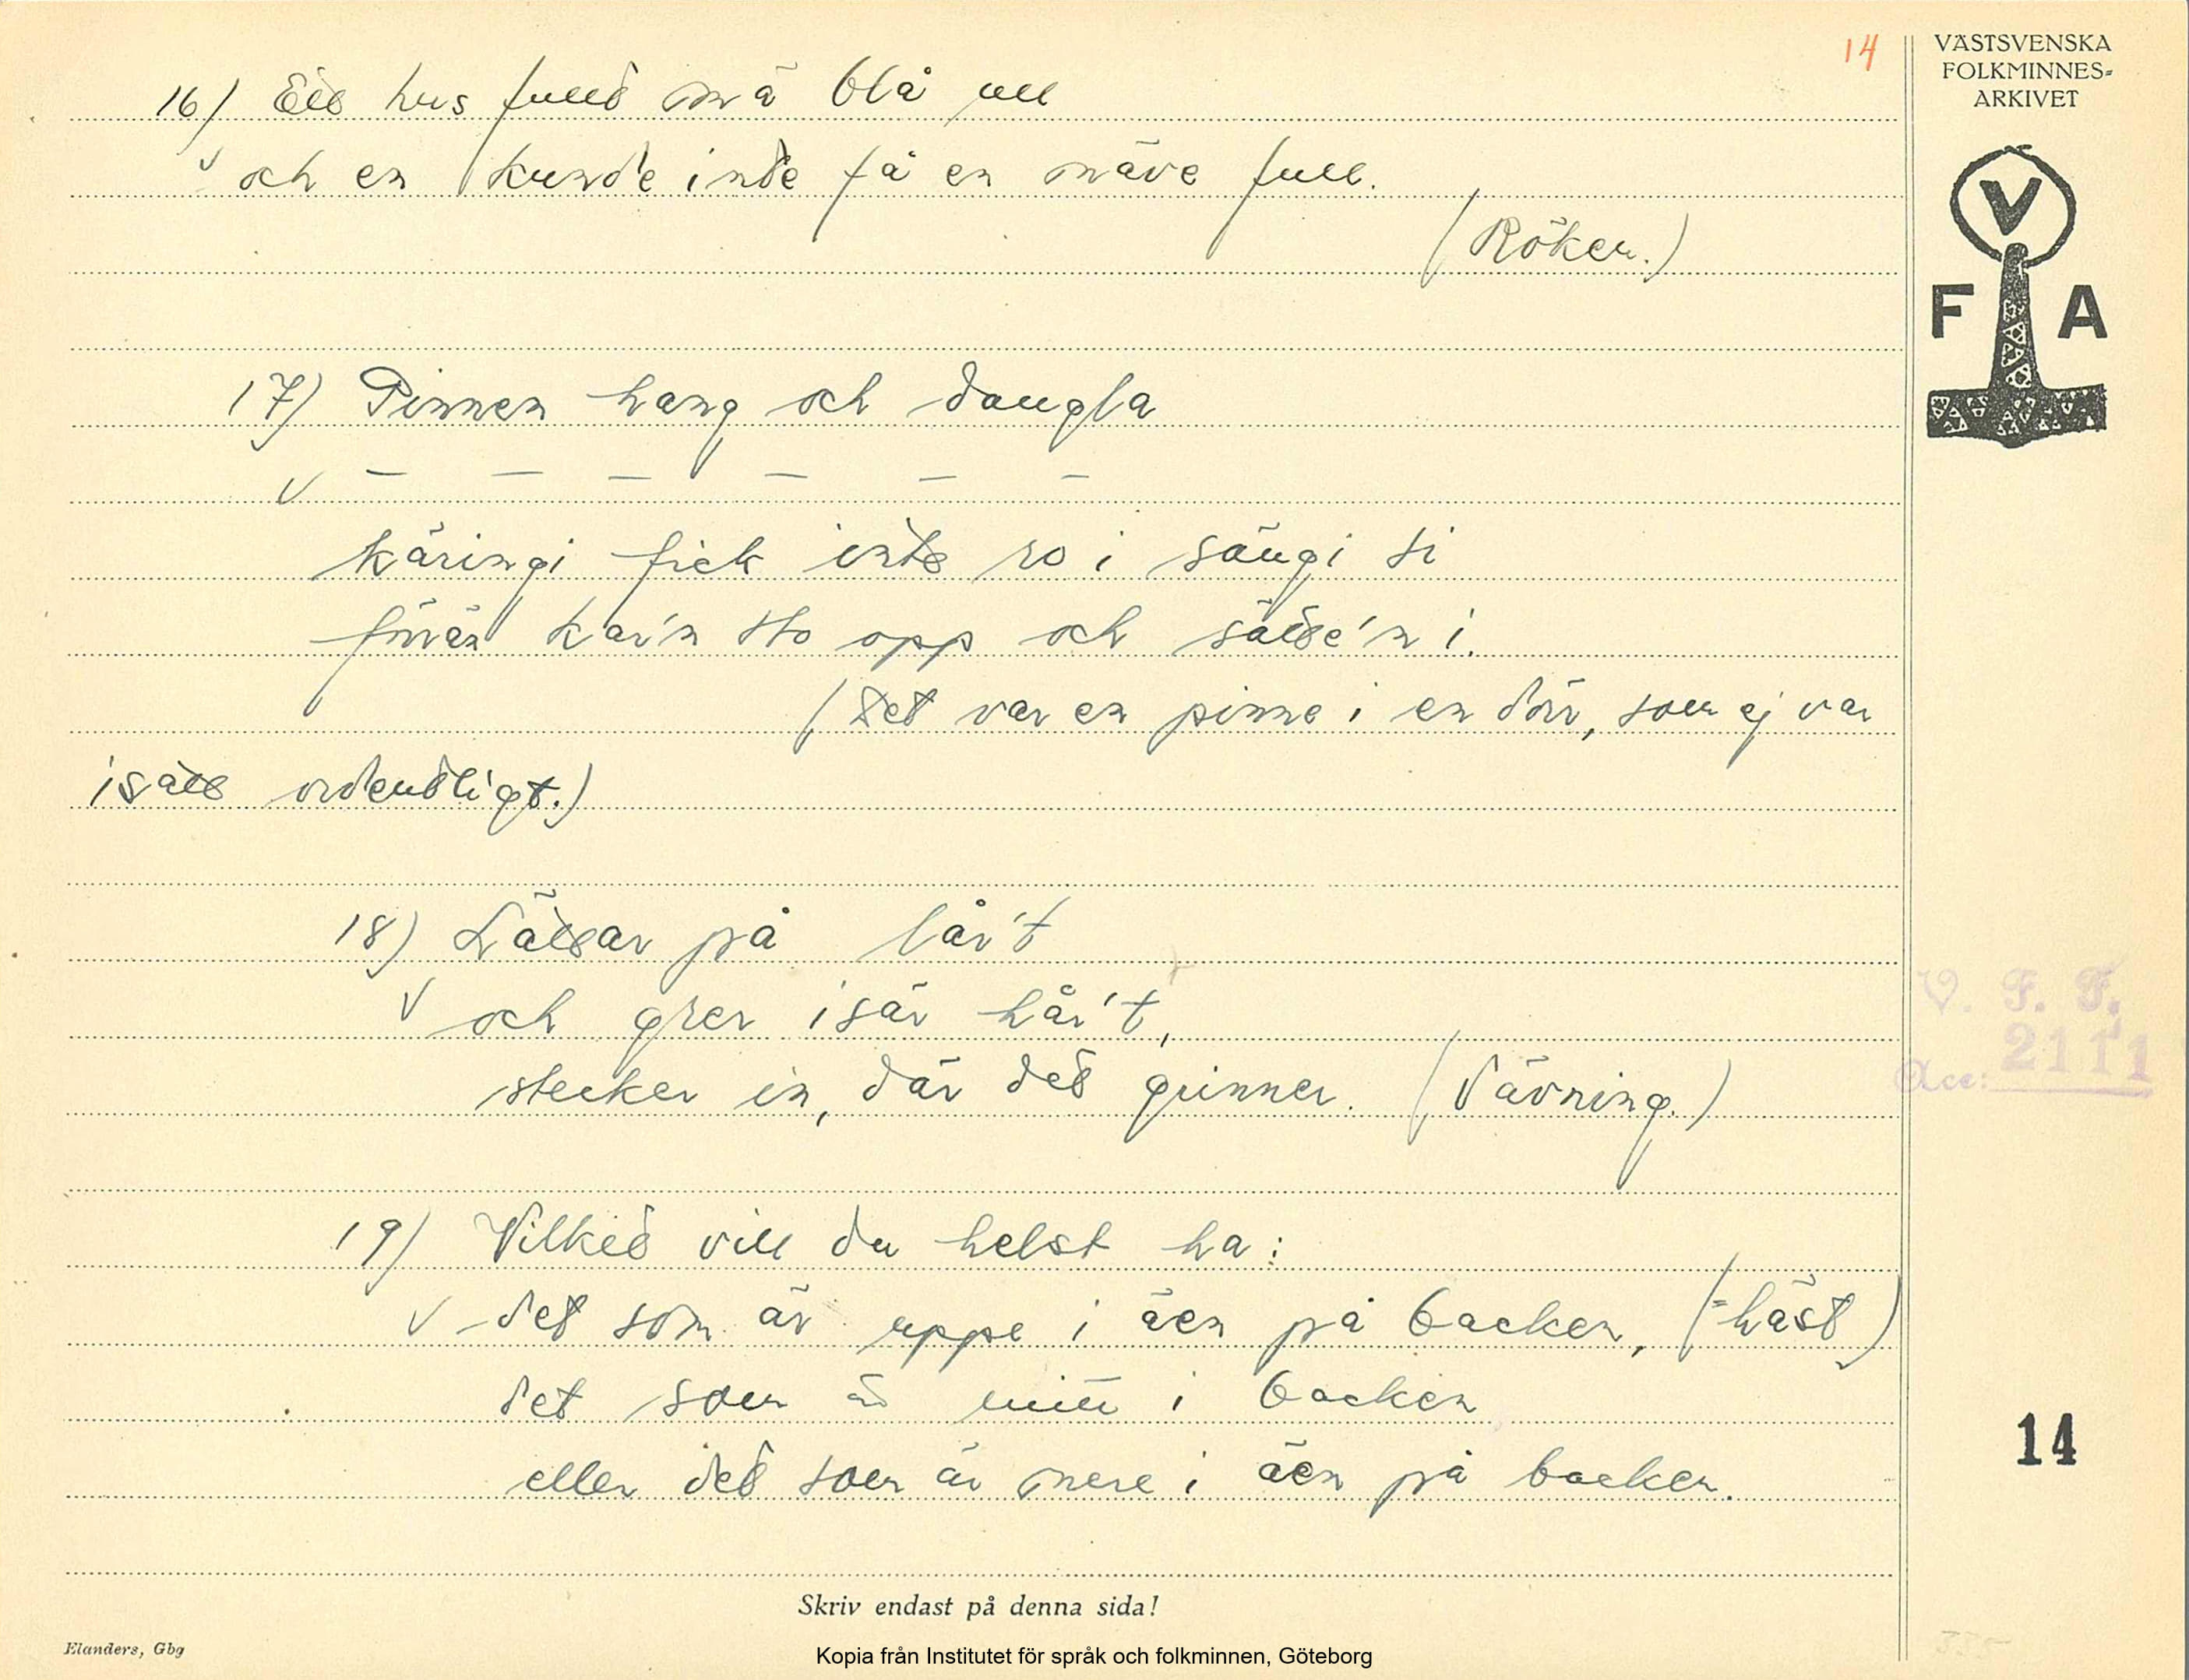 14
VÄSTSVENSKA
FOLKMINNES-
ARKIVET
V
F A
16) Ett hus fullt mä blå ull
v och en kunde inte få en näve full.
(Röken.)
17) Pinnen hang och dangla
v — — — — — —
käringi fick inte ro i sängi si
förrän kar'n sto opp och sätte'n i.
(Det var en pinne i en dörr, som ej var
isatt ordentligt.)
18) Låtsar på lår't
v och grer isär hår't,
stecker in, där det grinner. (Vävning.)
19) Vilket vill du helst ha:
v det som är uppe i äen på backen, (= häst)
det som är mitt i backen
eller det som är nere i äen på backen.
V. F. F.
Acc: 2111
14
Skriv endast på denna sida!
Elanders, Gbg
Kopia från Institutet för språk och folkminnen, Göteborg